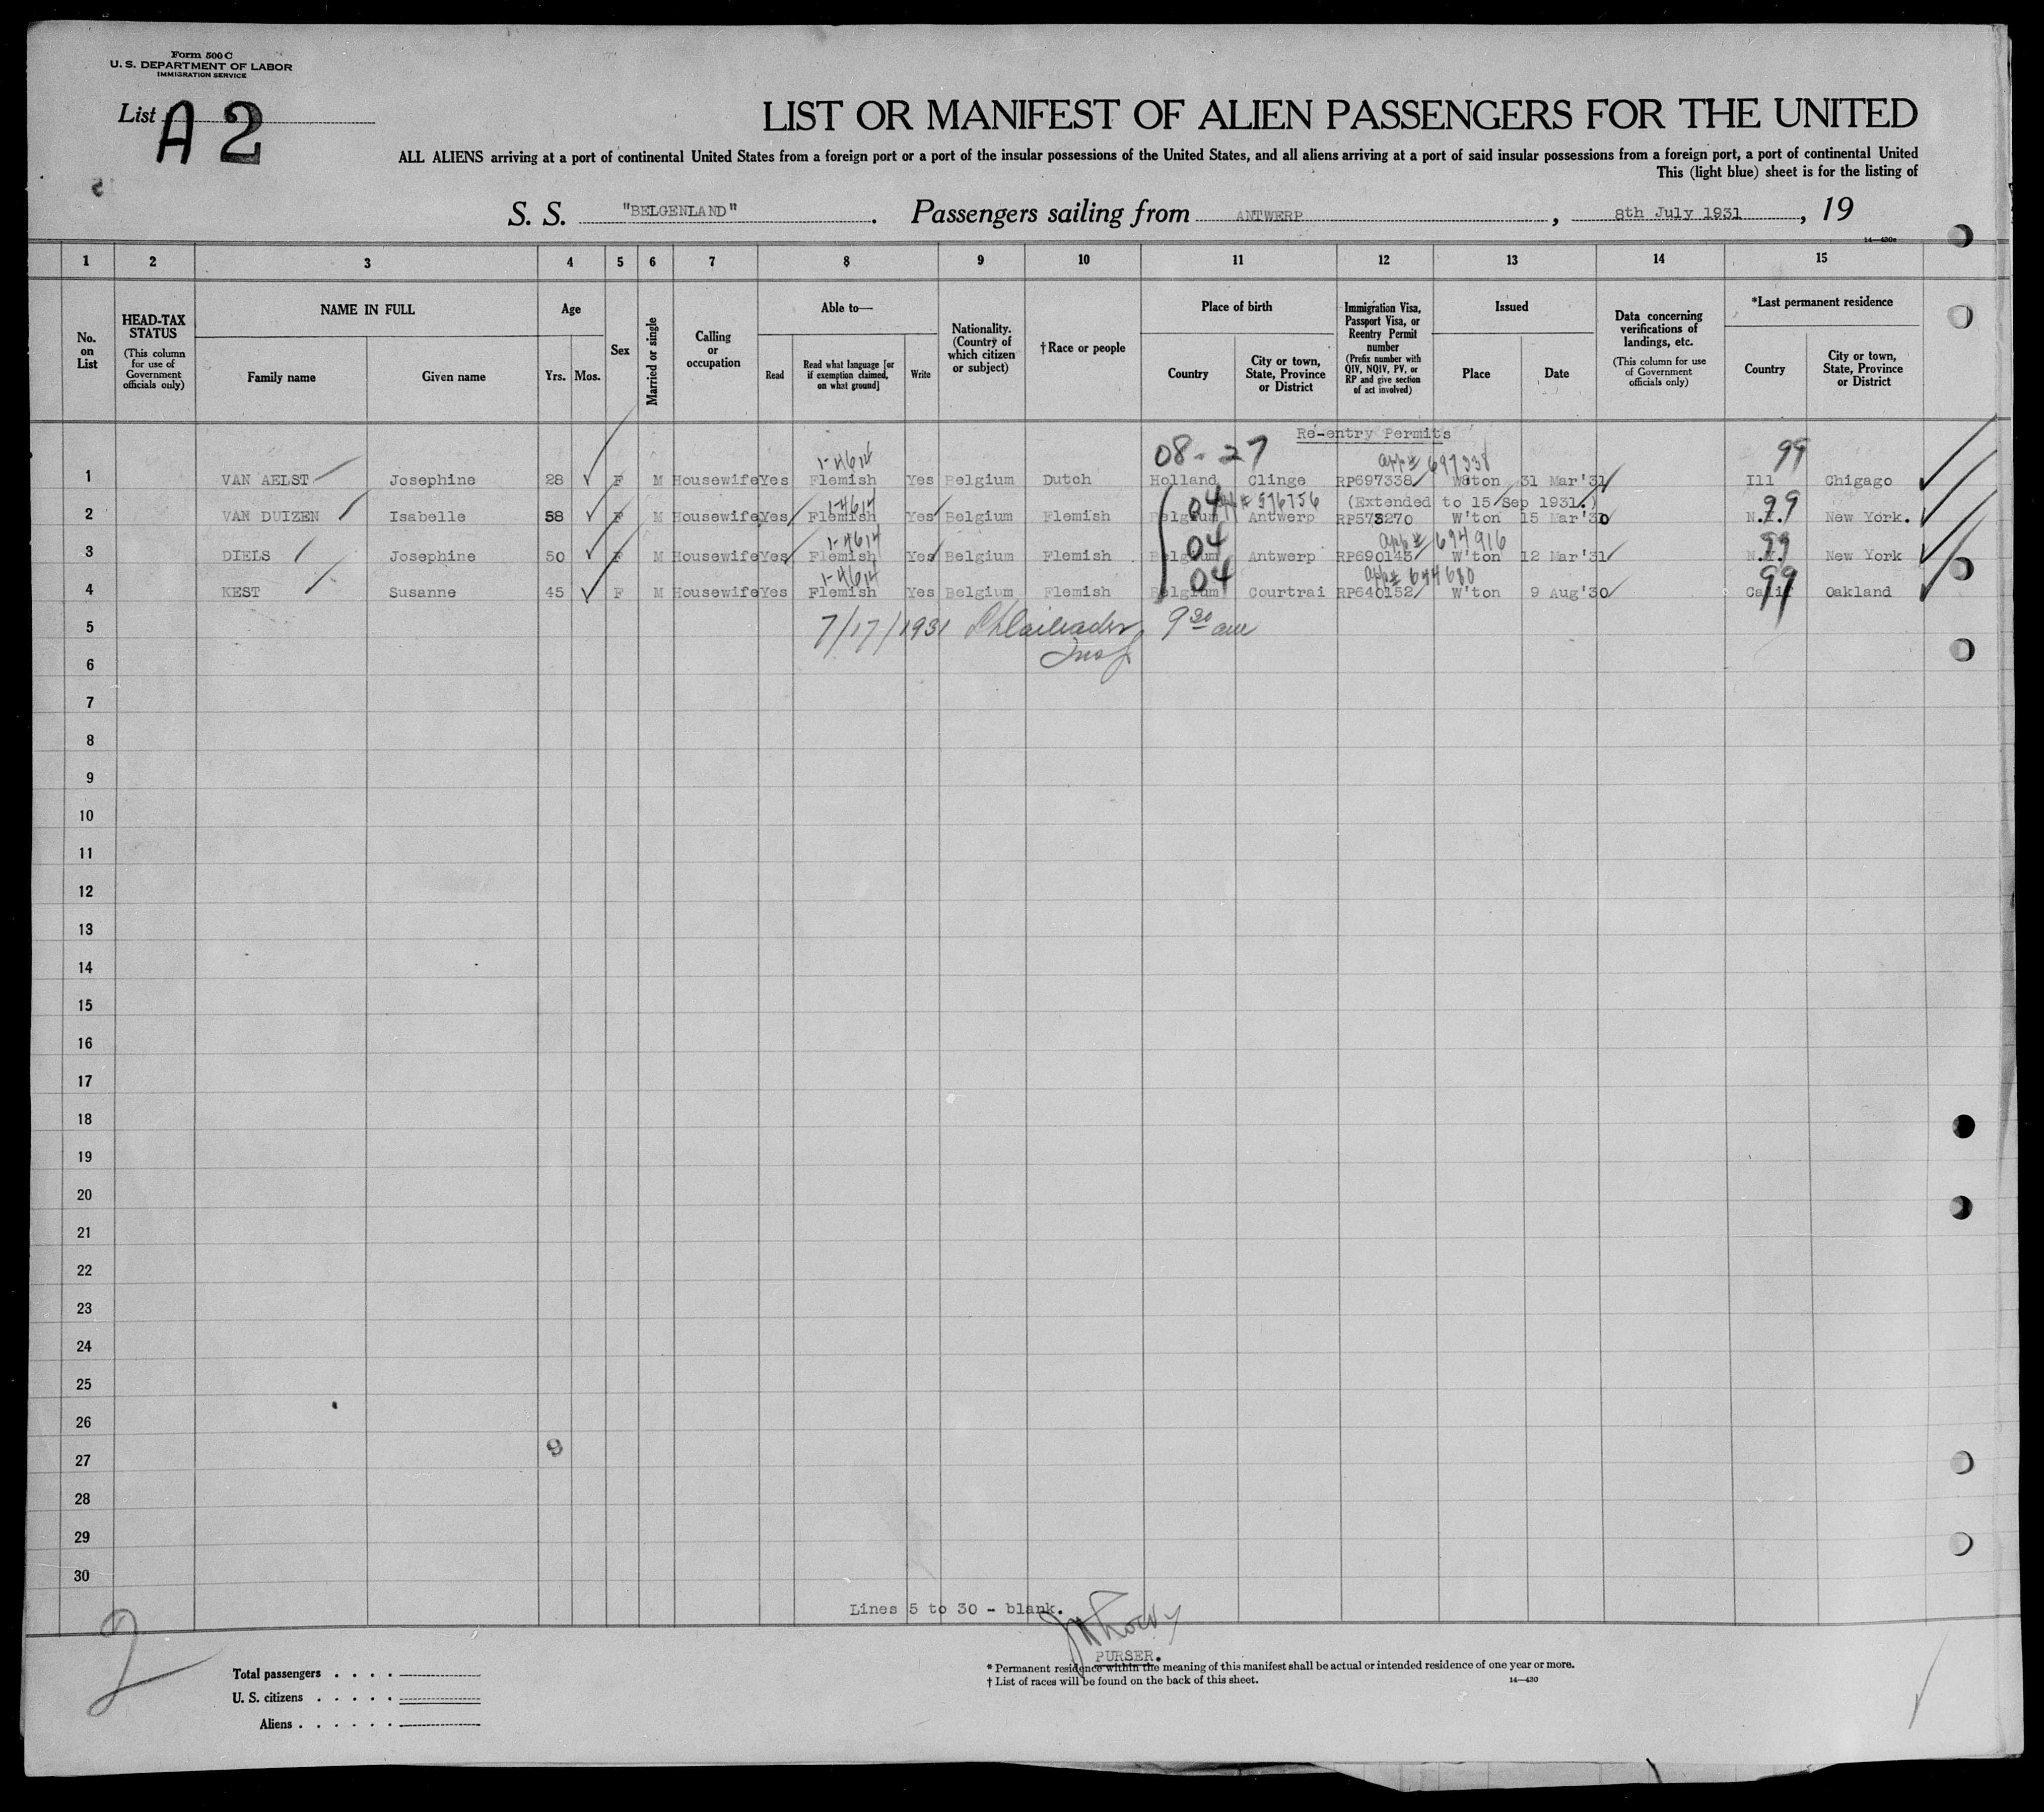 Form 500 C
U. S. DEPARTMENT OF LABOR
IMMIGRATION SERVICE
List A 2
LIST OR MANIFEST OF ALIEN PASSENGERS FOR THE UNITED
ALL ALIENS arriving at a port of continental United States from a foreign port or a port of the insular possessions of the United States, and all aliens arriving at a port of said insular possessions from a foreign port, a port of continental United
This (light blue) sheet is for the listing of
S. S. "BELGENLAND". Passengers sailing from ANTWERP, 8th July 1931, 19
14—430a
1 2 3 4 5 6 7 8 9 10 11 12 13 14 15
No. on List
HEAD-TAX STATUS (This column for use of Government officials only)
NAME IN FULL
Family name
Given name
Age
Yrs. Mos.
Sex
Married or single
Calling or occupation
Able to—
Read
Read what language [or if exemption claimed, on what ground]
Write
Nationality. (Country of which citizen or subject)
†Race or people
Place of birth
Country
City or town, State, Province or District
Immigration Visa, Passport Visa, or Reentry Permit number (Prefix number with QIV, NQIV, PV, or RP and give section of act involved)
Issued
Place
Date
Data concerning verifications of landings, etc. (This column for use of Government officials only)
*Last permanent residence
Country
City or town, State, Province or District
Re-entry Permits
08-27 app# 697338 99
1 VAN AELST Josephine 28 F M Housewife Yes Flemish Yes Belgium Dutch Holland Clinge RP697338 W'ton 31 Mar'31 Ill Chigago
04 # 576756 (Extended to 15 Sep 1931.) 99
2 VAN DUIZEN Isabelle 58 F M Housewife Yes Flemish Yes Belgium Flemish Belgium Antwerp RP573270 W'ton 15 Mar'30 N.Y. New York.
04 app# 694916 99
3 DIELS Josephine 50 F M Housewife Yes Flemish Yes Belgium Flemish Belgium Antwerp RP690143 W'ton 12 Mar'31 N.Y. New York
04 app# 644680 99
4 KEST Susanne 45 F M Housewife Yes Flemish Yes Belgium Flemish Belgium Courtrai RP640152 W'ton 9 Aug'30 Calif Oakland
5 7/17/1931 9 30 am
6 Insp
7
8
9
10
11
12
13
14
15
16
17
18
19
20
21
22
23
24
25
26
27 9
28
29
30
Lines 5 to 30 - blank.
PURSER.
2
Total passengers
U. S. citizens
Aliens
* Permanent residence within the meaning of this manifest shall be actual or intended residence of one year or more.
† List of races will be found on the back of this sheet.
14—430